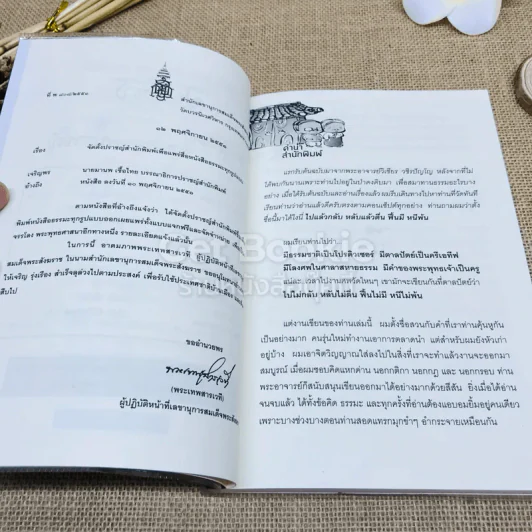 สำนักเลขานุการสมเด็จพระ
วัดบวรนิเวศวิหาร
๑๒ พฤศจิกายน ๒๕๕๑
เรื่อง จัดตั้งปราชญ์สำนักพิมพ์เพื่อเผยแพร่สื่อหนังสือธรรมะทุกรูปแบบ
เจริญพร นายมานพ เชื้อไทย บรรณาธิการปราชญ์สำนักพิมพ์
อ้างถึง หนังสือ ลงวันที่ ๑๐ พฤศจิกายน ๒๕๕๑
ตามหนังสือที่อ้างถึงแจ้งว่า ได้จัดตั้งปราชญ์สำนักพิมพ์
พิมพ์หนังสือธรรมะทุกรูปแบบออกเผยแพร่ทั้งแบบแจกฟรีและจัดจำหน่าย
จรรโลง พระพุทธศาสนาอีกทางหนึ่ง รายละเอียดแจ้งแล้วนั้น
ในการนี้ อาตมภาพพระเทพสารเวที ผู้ปฏิบัติหน้าที่
สมเด็จพระสังฆราช ในนามสำนักเลขานุการสมเด็จพระสังฆราช ขออนุโมทนา
ให้เจริญ รุ่งเรือง สำเร็จลุล่วงไปตามประสงค์ เพื่อรับใช้ประเทศชาติ
สืบไป
ขออำนวยพร
(พระเทพสารเวที)
ผู้ปฏิบัติหน้าที่เลขานุการสมเด็จพระสังฆราช
คำนำ
สำนักพิมพ์
แรกรับต้นฉบับมาจากพระอาจารย์วิเชียร วชิรปัญโญ หลังจากที่ไม่
ได้พบกันนานเพราะท่านไปอยู่ในป่าดงดิบมา เพื่อสมาทานธรรมอะไรบาง
อย่าง เมื่อได้รับต้นฉบับและอ่านเรื่องแล้ว ผมรีบเดินทางไปหาท่านที่วัดทันที
เรียนท่านว่าอ่านแล้วดีครับตรงตามคอนเซ็ปต์ที่คุยกันทุกอย่าง ท่านถามผมว่าตั้ง
ชื่อนี้มาได้ไงนี่ ไปแล้วกลับ หลับแล้วตื่น ฟื้นมี หนีพ้น
ผมเรียนท่านไปว่า
มีธรรมชาติเป็นโปรดิวเซอร์ มีตาลปัตย์เป็นครีเอทีฟ
มีโลงศพในศาลาสหายธรรม มีคำของพระพุทธเจ้าเป็นครู
แน่ะ เวลาไปงานศพสวัดไหนๆ เขามักจะเขียนกันที่ตาลปัตย์ว่า
ไปไม่กลับ หลับไม่ตื่น ฟื้นไม่มี หนีไม่พ้น
แต่งานเขียนของท่านเล่มนี้ ผมตั้งชื่อสวนกับคำที่เราท่านคุ้นหูกัน
เป็นอย่างดี คนรุ่นใหม่ทำงานเอาการตลาดนำ แต่สำหรับผมยังหัวเก่า
อยู่บ้าง ผมเอาจิตวิญญาณใส่ลงไปในสิ่งที่เราจะทำแล้วงานจะออกมา
สมบูรณ์ เมื่อผมชอบคิดแหกด่าน นอกกติกา นอกกฎ และ นอกกรอบ ท่าน
พระอาจารย์ก็สนับสนุนเขียนออกมาได้อย่างเต็มด้วยสีสัน ยิ่งเมื่อได้อ่าน
จนจบแล้ว ได้ทั้งข้อคิด ธรรมะ และทุกครั้งที่อ่านต้องแอบอมยิ้มอยู่คนเดียว
เพราะบางช่วงบางตอนท่านสอดแทรกมุกขำๆ อำกระจายเหมือนกัน